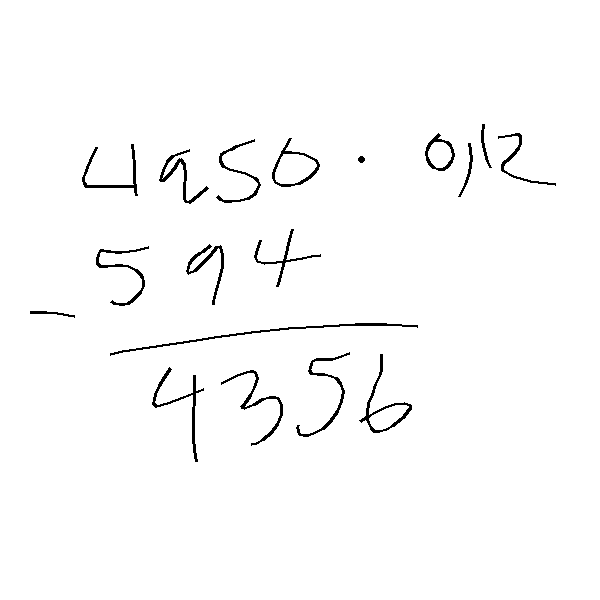 4950 · 0,12
- 594
4356